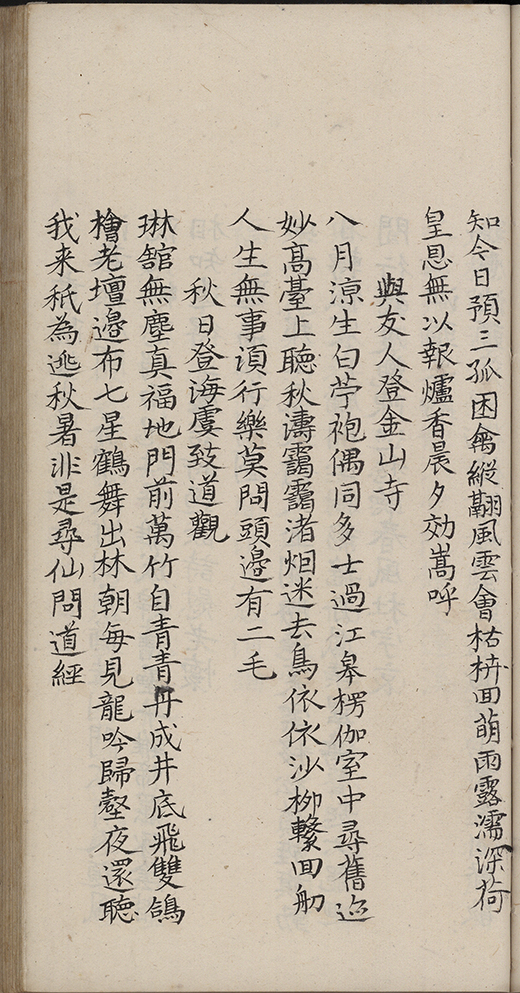 知今日預三孤困禽縱翮風雲會枯枿回萌雨露濡深荷
皇恩無以報爐香晨夕効嵩呼
與友人登金山寺
八月涼生白苧袍偶同多士過江皋楞伽室中尋舊迹
妙高臺上聽秋濤靄靄渚烟迷去鳥依依沙柳繫回舠
人生無事須行樂莫問頭邊有二毛
秋日登海虞致道觀
琳舘無塵真福地門前萬竹自青青丹成井底飛雙鴿
檜老壇邊布七星鶴舞出林朝每見龍吟歸壑夜還聽
我来秖為逃秋暑非是尋仙問道經